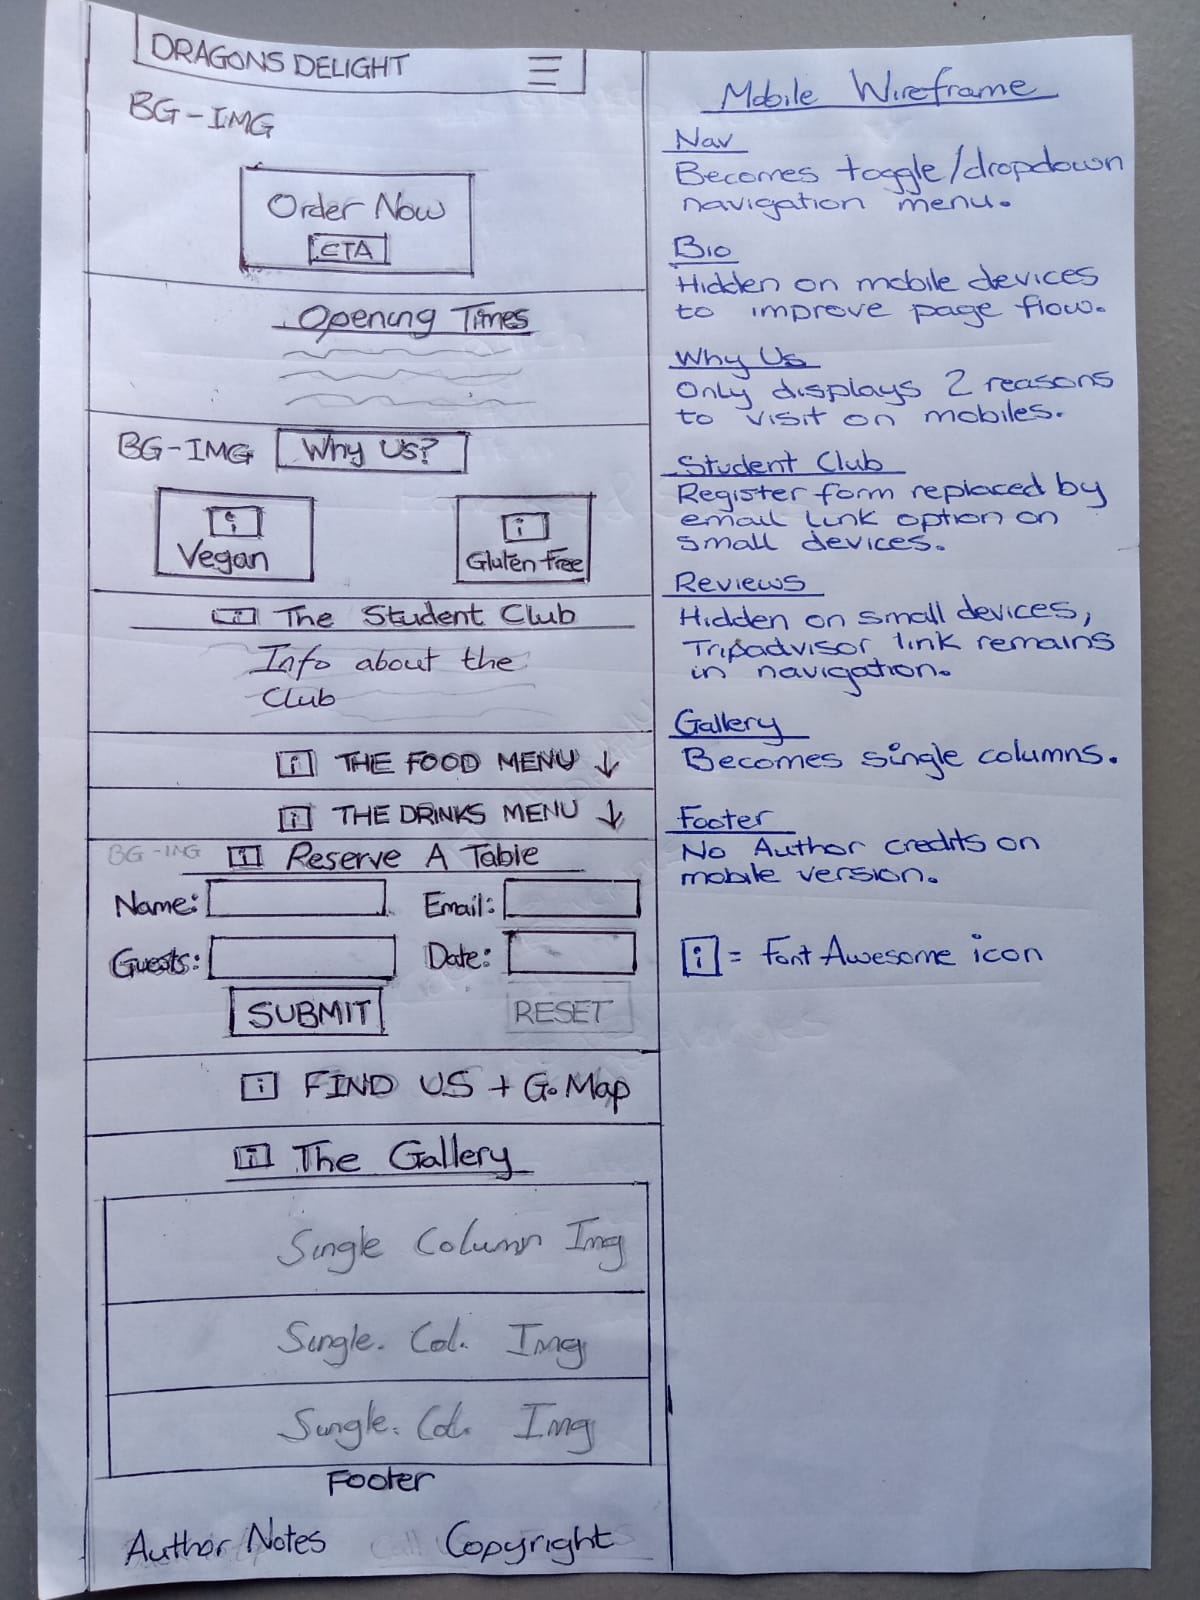 DRAGONS DELIGHT
BG-IMG
Order Now
CTA
Opening Times
BG-IMG Why Us?
i i
Vegan Gluten Free
i The Student Club
Info about the
Club
i THE FOOD MENU ↓
i THE DRINKS MENU ↓
BG-IMG i Reserve A Table
Name: Email:
Guests: Date:
SUBMIT RESET
i FIND US + G.Map
i The Gallery
Single Column Img
Single. Col. Img
Single. Col. Img
Footer
Author Notes Copyright
Mobile Wireframe
Nav
Becomes toggle/dropdown
navigation menu.
Bio
Hidden on mobile devices
to improve page flow.
Why Us
Only displays 2 reasons
to visit on mobiles.
Student Club
Register form replaced by
email link option on
small devices.
Reviews
Hidden on small devices,
Tripadvisor link remains
in navigation.
Gallery
Becomes single columns.
Footer
No Author credits on
mobile version.
i = Font Awesome icon